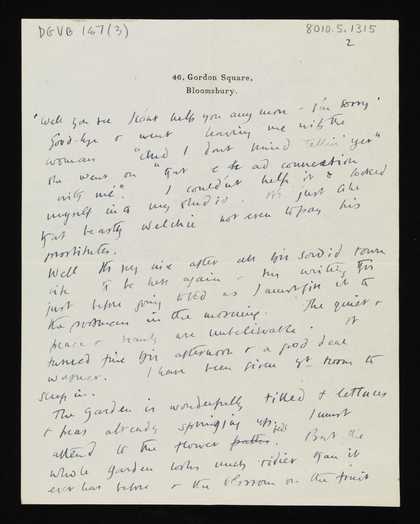 DGVB 147(3)
8010.5.1315
2
46, Gordon Square,
Bloomsbury.
"Well you see I can't help you any more – I'm sorry"
Good-bye & went leaving me with the
woman "And I don't mind tellin' yer"
she went on "that e 'as 'ad connection
with me". I couldn't help it & locked
myself into my studio. It's just like
that beastly Welchie not even to pay his
prostitutes.
Well it's very nice after all this sordid town
life to be here again & I'm writing this
just before going to bed as I must give it to
the postman in the morning. The quiet &
peace & beauty are unbelievable. It
turned fine this afternoon & a good deal
warmer. I have been given yr room to
sleep in.
The garden is wonderfully tilled & lettuces
& peas already springing up. I must
attend to the flower beds. But the
whole garden looks much tidier than it
ever has before & the blossom on the fruit